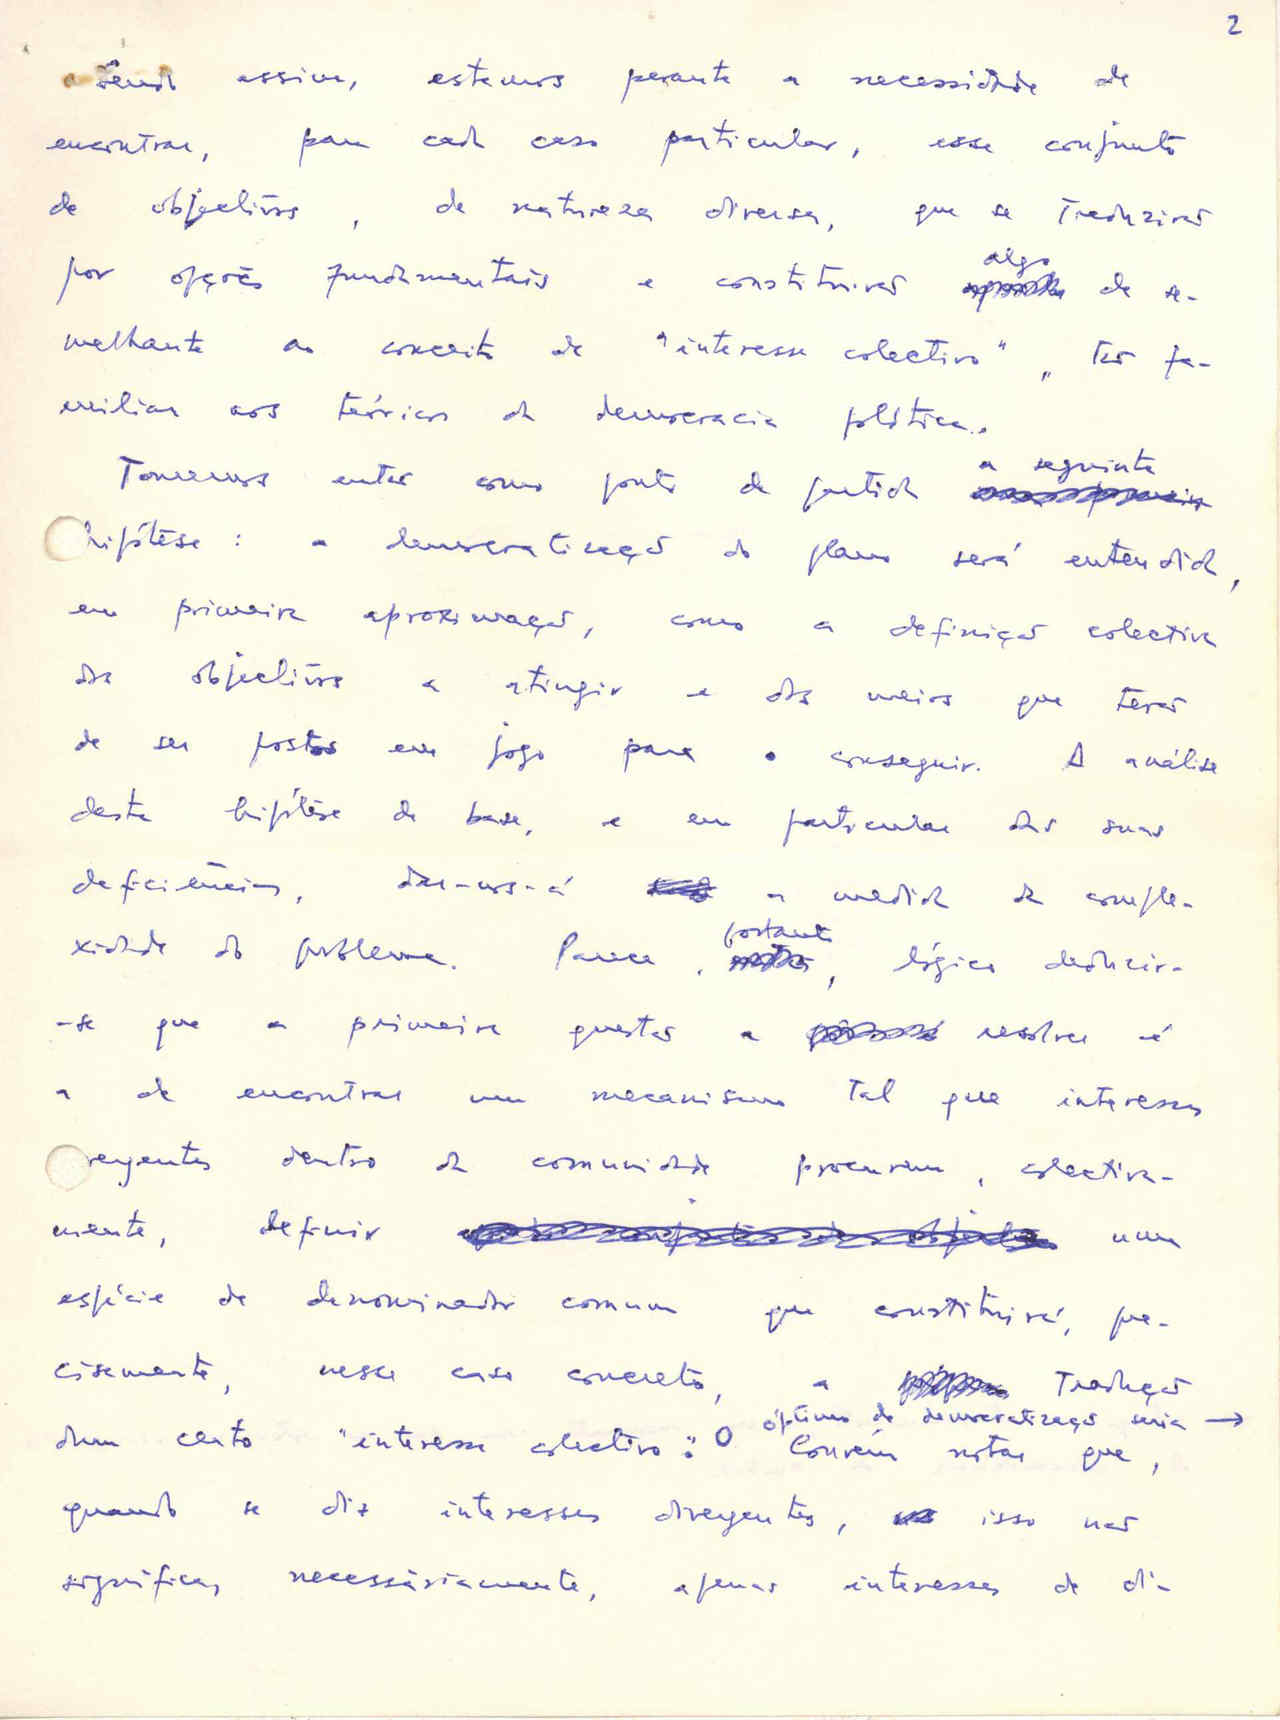 2
Sendo assim, estamos perante a necessidade de
encontrar, para cada caso particular, esse conjunto
de objectivos, de natureza diversa, que se traduzirão
por opções fundamentais e constituirão algo de se-
melhante ao conceito de "interesse colectivo", tão fa-
miliar aos teóricos da democracia política.
Tomemos então como ponto de partida a seguinte
hipótese: a democratização do plano será entendida,
em primeira aproximação, como a definição colectiva
dos objectivos a atingir e dos meios que terão
de ser postos em jogo para o conseguir. A análise
desta hipótese de base, e em particular das suas
deficiências, dar-nos-á a medida da comple-
xidade do problema. Parece, portanto, lógico deduzir-
-se que a primeira questão a resolver é
a de encontrar um mecanismo tal que interesses
vergentes dentro da comunidade procurem, colectiva-
mente, definir uma
espécie de denominador comum que constituirá, pre-
cisamente, nesse caso concreto, a tradução
dum certo "interesse colectivo". O óptimo de democratização seria →
Convém notar que,
quando se diz interesses divergentes, isso não
significa, necessàriamente, apenas interesses de di-